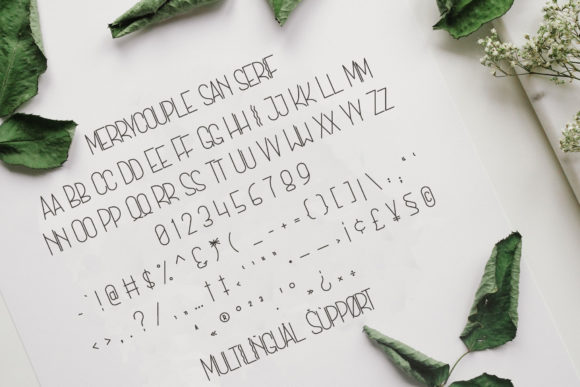 MERRYCOUPLE SAN SERIF
AA BB CC DD EE FF GG HH II JJ KK LL MM
NN OO PP QQ RR SS TT UU VV WW XX YY ZZ
0123456789
!@#$%^&*() _-+={}[]|\:;
<>,.?/
MULTILINGUAL SUPPORT